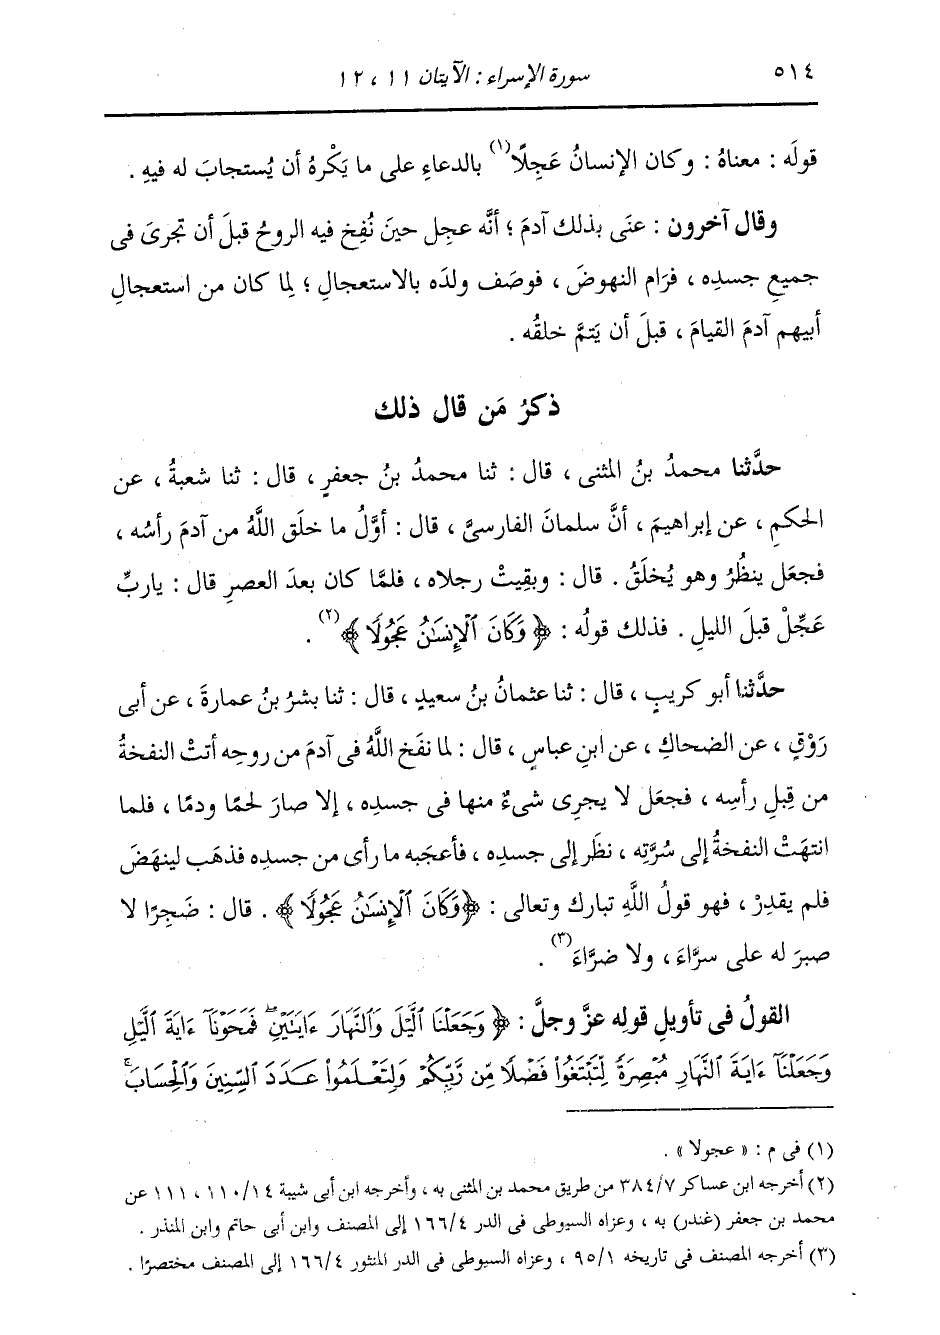 ٥١٤ سورة الإسراء : الآيتان ١١ ، ١٢
قولَه : معناهُ : وكان الإنسانُ عَجِلًا(١) بالدعاءِ على ما يَكْرهُ أن يُستجابَ له فيهِ .
وقال آخرون : عنَى بذلك آدمَ ؛ أنَّه عجِل حينَ نُفِخ فيه الروحُ قبلَ أن تجرىَ فى
جميعِ جسدِه ، فرَام النهوضَ ، فوصَف ولدَه بالاستعجالِ ؛ لِما كان من استعجالِ
أبيهم آدمَ القيامَ ، قبلَ أن يَتمَّ خلقُه .
ذكرُ مَن قال ذلك
حدَّثنا محمدُ بنُ المثنى ، قال : ثنا محمدُ بنُ جعفرٍ ، قال : ثنا شعبةُ ، عن
الحكمِ ، عن إبراهيمَ ، أنَّ سلمانَ الفارسىَّ ، قال : أوَّلُ ما خلَق اللَّهُ من آدمَ رأسُه ،
فجعَل ينظُرُ وهو يُخلَقُ . قال : وبقِيتْ رجلاه ، فلمَّا كان بعدَ العصرِ قال : ياربِّ
عَجِّلْ قبلَ الليلِ . فذلك قولُه : ﴿ وَكَانَ ٱلْإِنسَٰنُ عَجُولًا ﴾(٢) .
حدَّثنا أبو كريبٍ ، قال : ثنا عثمانُ بنُ سعيدٍ ، قال : ثنا بشرُ بنُ عمارةَ ، عن أبى
رَوْقٍ ، عن الضحاكِ ، عن ابنِ عباسٍ ، قال : لما نفَخ اللَّهُ فى آدمَ من روحِه أتتْ النفخةُ
من قِبلِ رأسِه ، فجعَل لا يجرِى شىءٌ منها فى جسدِه ، إلا صارَ لحمًا ودمًا ، فلما
انتهَتْ النفخةُ إلى سُرَّتِه ، نظَر إلى جسدِه ، فأعجَبه ما رأى من جسدِه فذهَب لينهَضَ
فلم يقدِرْ ، فهو قولُ اللَّهِ تبارك وتعالى : ﴿ وَكَانَ ٱلْإِنسَٰنُ عَجُولًا ﴾ . قال : ضَجِرًا لا
صبرَ له على سرَّاءَ ، ولا ضرَّاءَ(٣) .
القولُ فى تأويلِ قولِه عزَّ وجلَّ : ﴿ وَجَعَلْنَا ٱلَّيْلَ وَٱلنَّهَارَ ءَايَتَيْنِۖ فَمَحَوْنَآ ءَايَةَ ٱلَّيْلِ
وَجَعَلْنَآ ءَايَةَ ٱلنَّهَارِ مُبْصِرَةً لِّتَبْتَغُوا۟ فَضْلًا مِّن رَّبِّكُمْ وَلِتَعْلَمُوا۟ عَدَدَ ٱلسِّنِينَ وَٱلْحِسَابَۚ
(١) فى م : « عجولا » .
(٢) أخرجه ابن عساكر ٣٨٤/٧ من طريق محمد بن المثنى به ، وأخرجه ابن أبى شيبة ١١٠/١٤ ، ١١١ عن
محمد بن جعفر (غندر) به ، وعزاه السيوطى فى الدر ١٦٦/٤ إلى المصنف وابن أبى حاتم وابن المنذر .
(٣) أخرجه المصنف فى تاريخه ٩٥/١ ، وعزاه السيوطى فى الدر المنثور ١٦٦/٤ إلى المصنف مختصرًا .